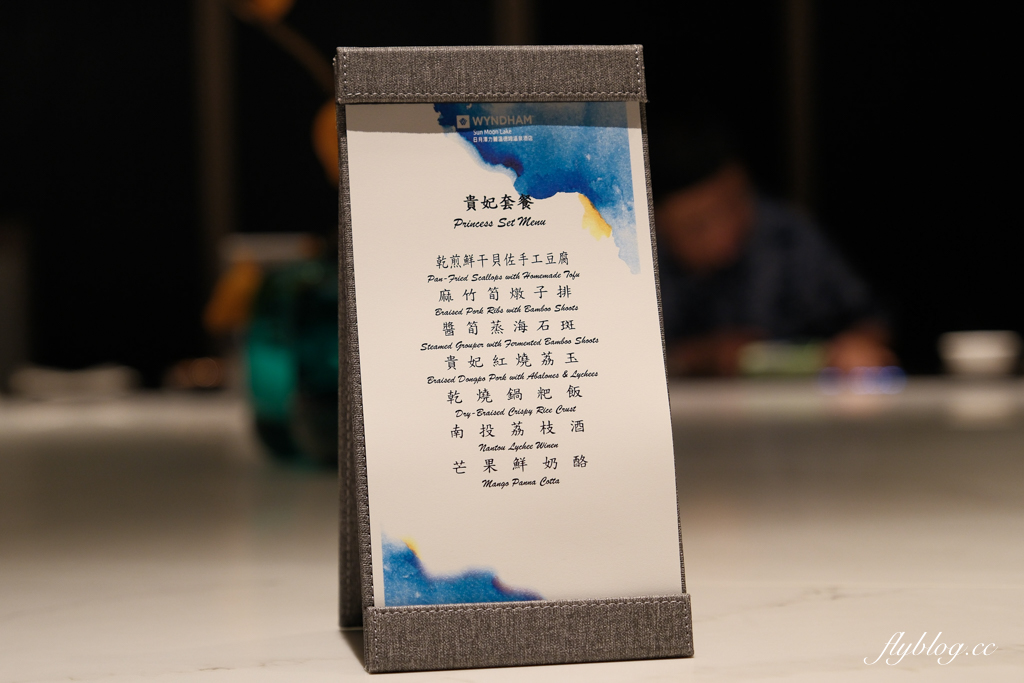 WYNDHAM
Sun Moon Lake
貴妃套餐
Princess Set Menu
乾煎鮮干貝佐手工豆腐
Pan-Fried Scallops with Homemade Tofu
麻竹筍燉子排
Braised Pork Ribs with Bamboo Shoots
醬筍蒸海石斑
Steamed Grouper with Fermented Bamboo Shoots
貴妃紅燒荔玉
Braised Dongpo Pork with Abalones & Lychees
乾燒鍋粑飯
Dry-Braised Crispy Rice Crust
南投荔枝酒
Nantou Lychee Winen
芒果鮮奶酪
Mango Panna Cotta
flyblog.cc